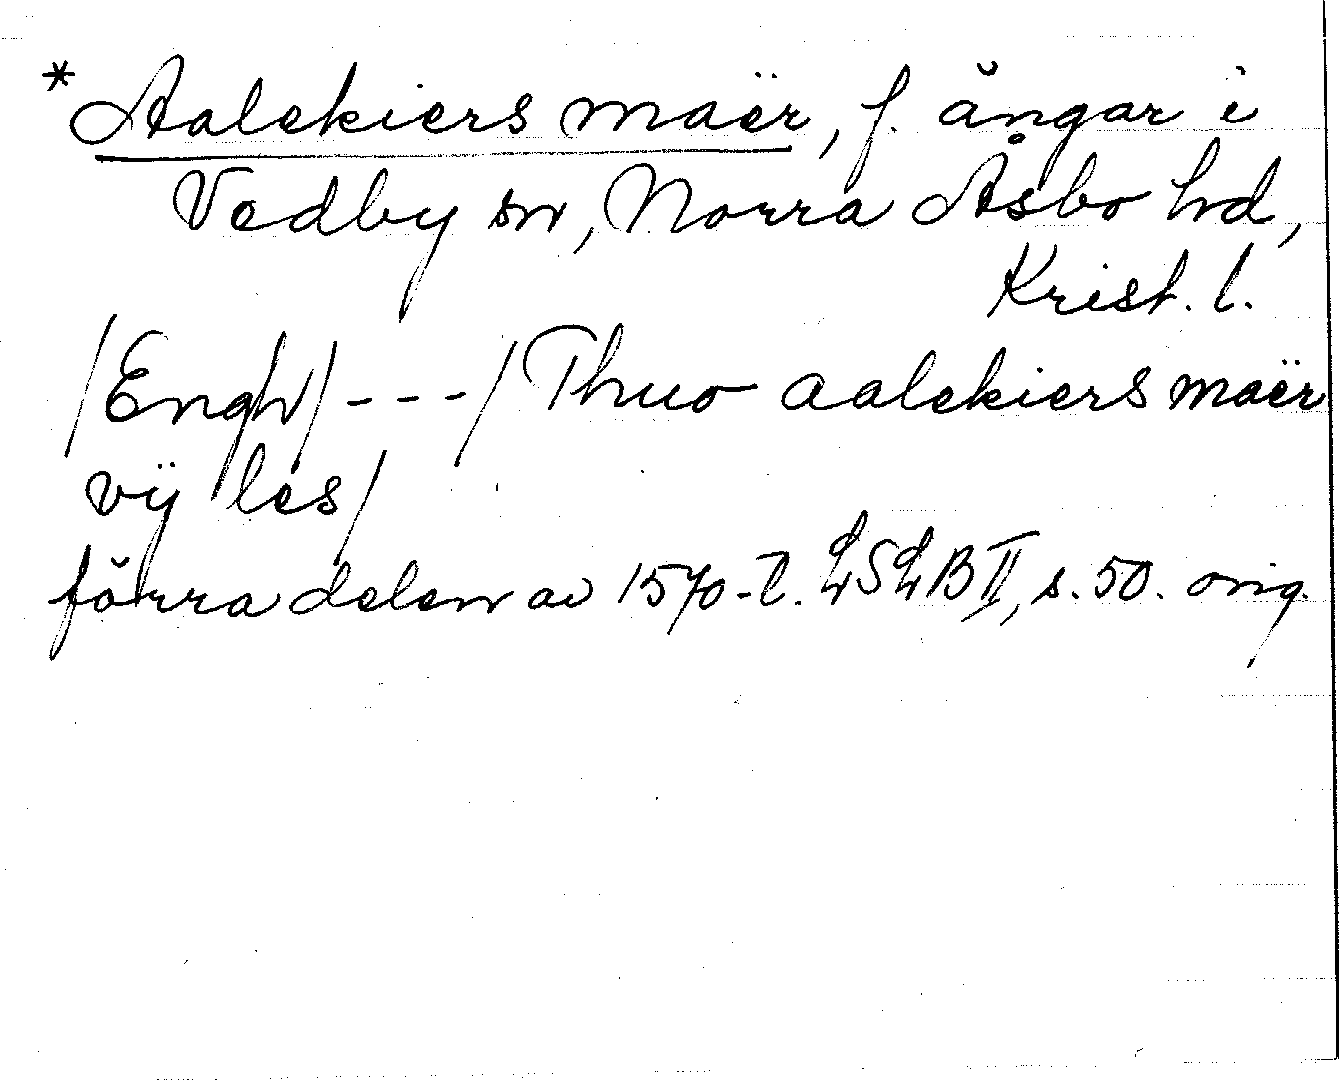 *Aalekiers maër, f. ängar i
Vedby sn, Norra Åsbo hd,
Krist. l.
/Engh/ - - - / Thuo aalekiers maër
vÿ les/
förra delen av 1570-t. LSLB II, s. 50. orig.